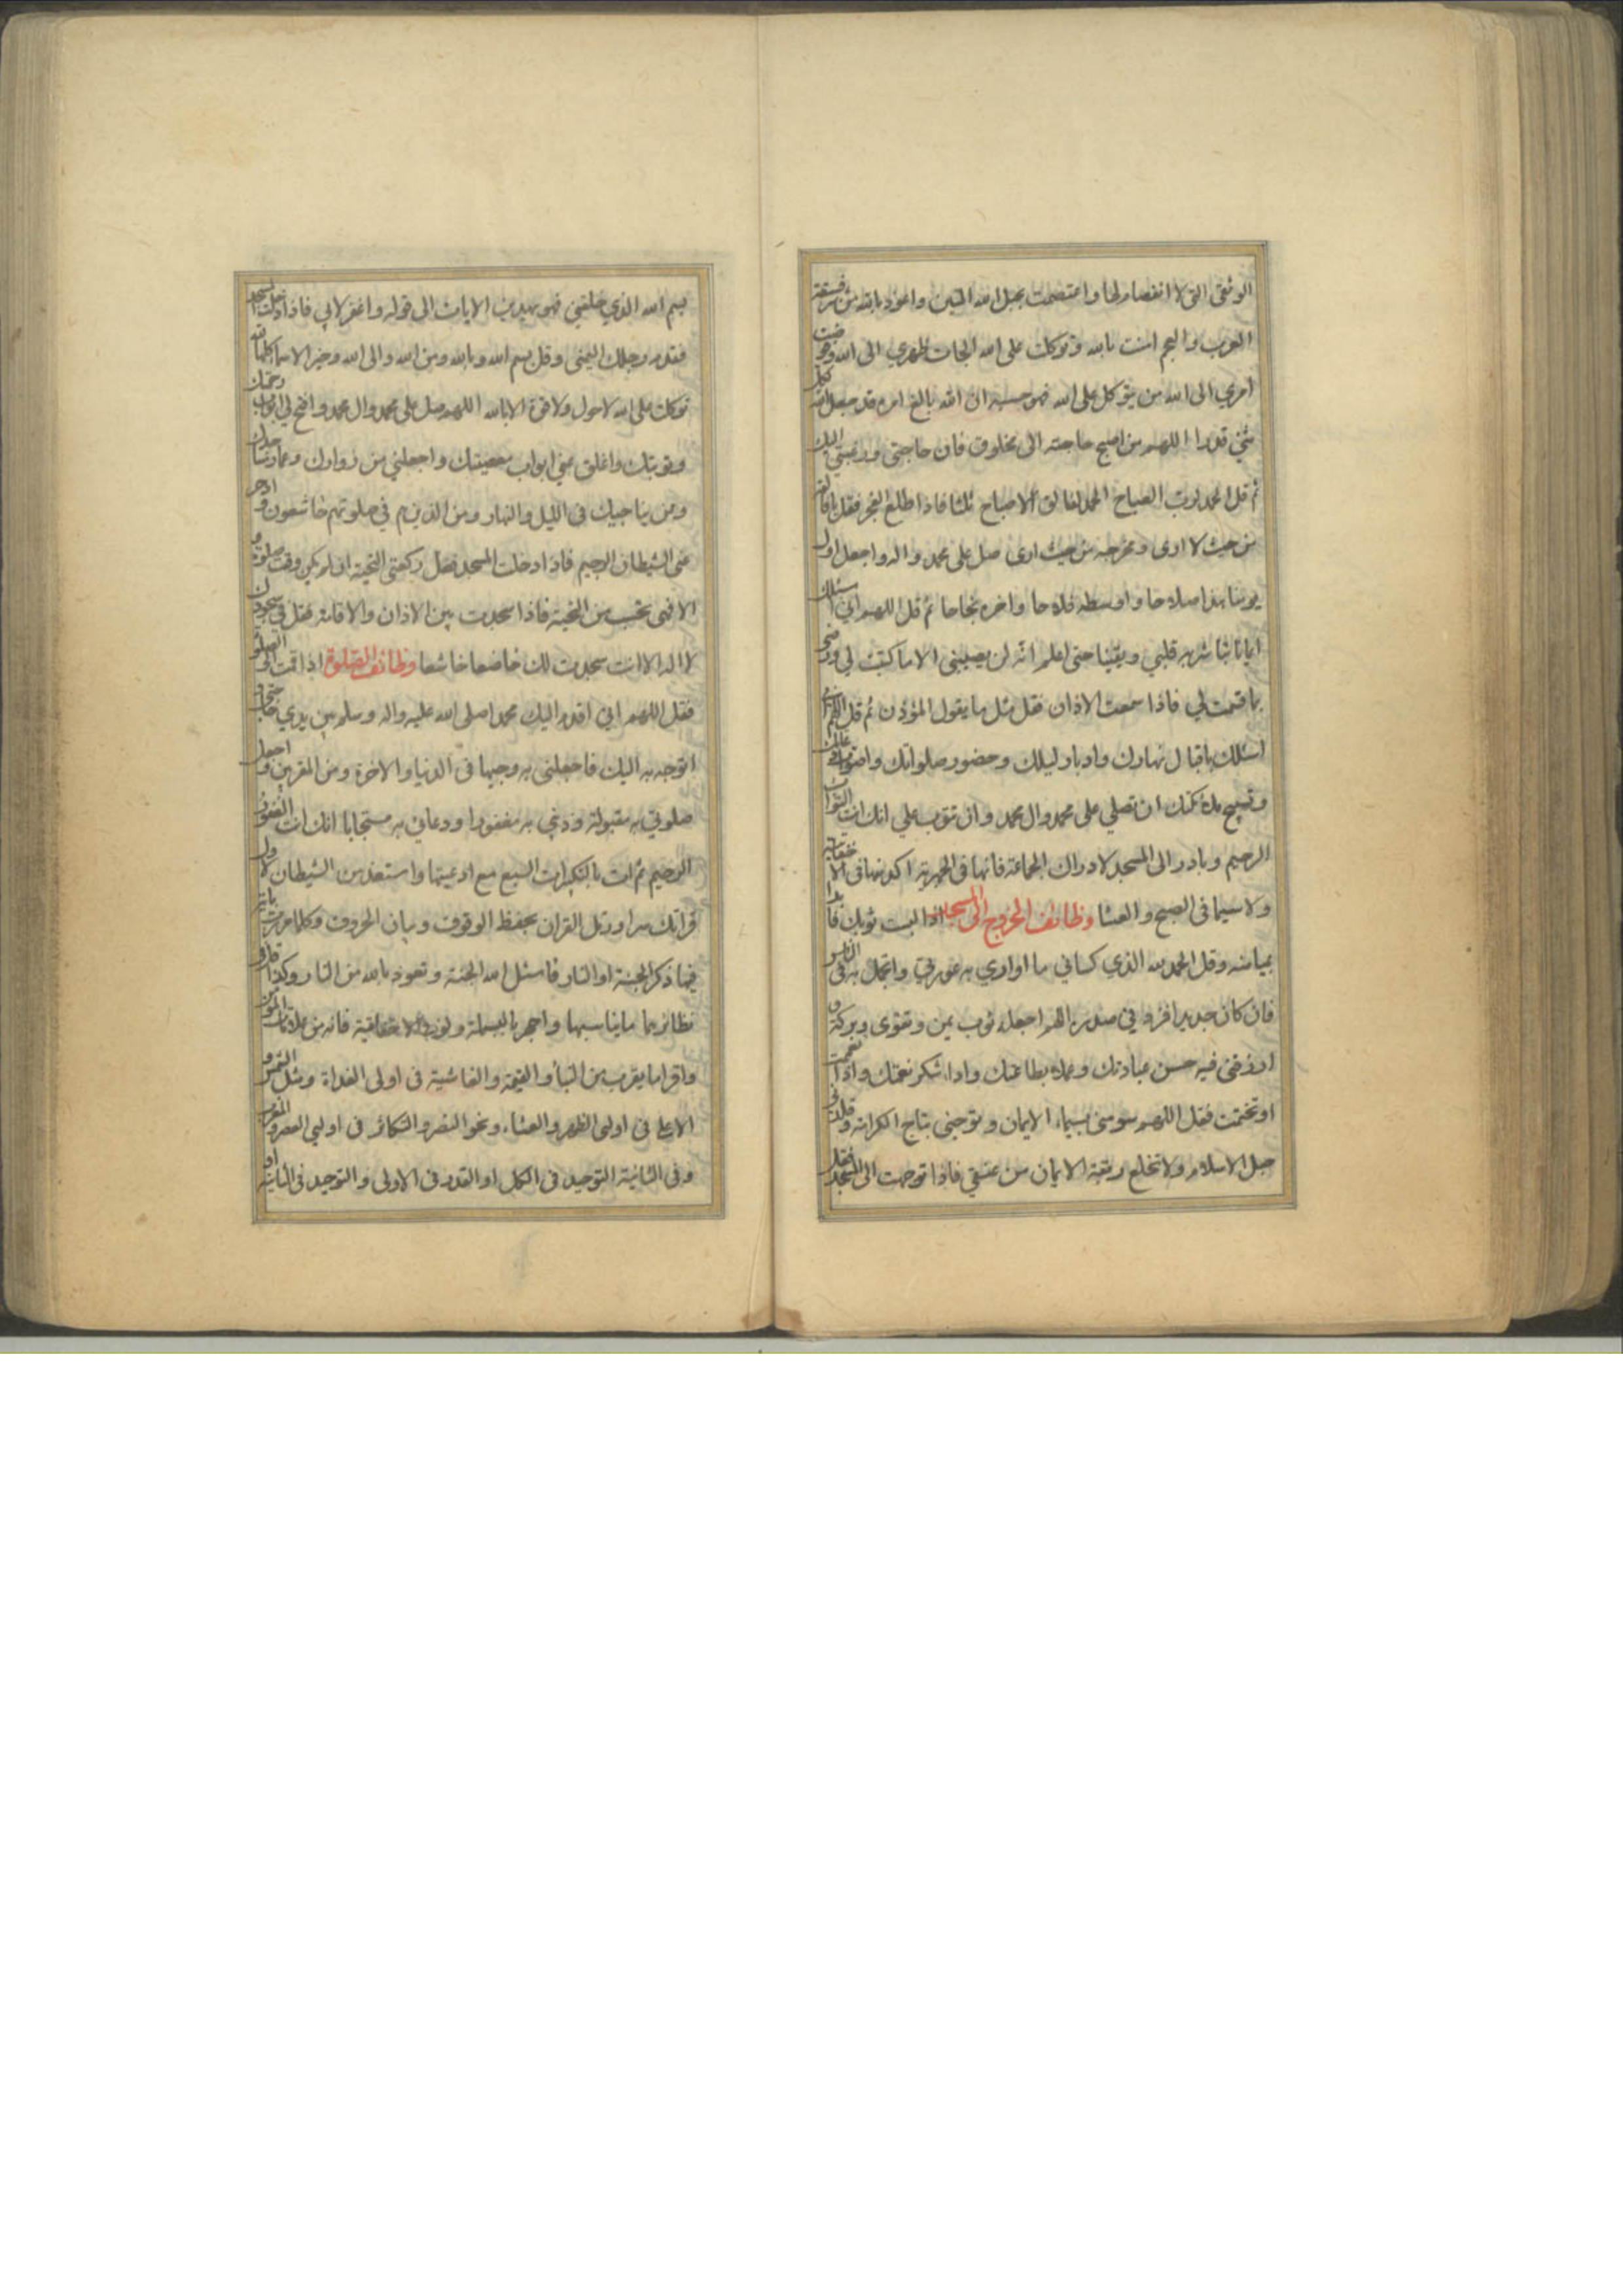 الوثقى التي لا انفصام لها واعتصمت بحبل الله المتين واعوذ بالله من شر فسقة
العرب والعجم امنت بالله وتوكلت على الله الجات ظهري الى الله وفوضت
امري الى الله من يتوكل على الله فهو حسبه ان الله بالغ امره قد جعل الله لكل
شئ قدرا اللهم من اصبح حاجته الى مخلوق فان حاجتي ورغبتي اليك
ثم قل الحمد لرب الصباح الحمد لفالق الاصباح ثلثا فاذا طلع الفجر فقل يا فالقه
من حيث لا ارى ومخرجه من حيث ارى صل على محمد واله واجعل اول
يومنا هذا صلاحا واوسطه فلاحا واخره نجاحا ثم قل اللهم اني اسئلك
ايمانا تباشر به قلبي ويقينا حتى اعلم انه لن يصيبني الا ما كتبت لي ورضني
بما قسمت لي فاذا سمعت الاذان فقل مثل ما يقول المؤذن ثم قل اللهم اني
اسئلك باقبال نهارك وادبار ليلك وحضور صلواتك واصوات دعائك
وتسبيح ملائكتك ان تصلي على محمد وال محمد وان تتوب علي انك انت التواب
الرحيم وبادر الى المسجد لادراك الجماعة فانها في الجهرية اكد منها في الاخفاتية
ولا سيما في الصبح والعشا وظائف الخروج الى المسجد اذا لبست ثوبك فابدا
بميامنه وقل الحمد لله الذي كساني ما اواري به عورتي واتجمل به في الناس
فان كان جديدا فزد في صدره اللهم اجعله ثوب يمن وتقوى وبركة و
ارزقني فيه حسن عبادتك وعملا بطاعتك واداء شكر نعمتك واذا تعممت
او تختمت فقل اللهم سومني بسيماء الايمان وتوجني بتاج الكرامة وقلدني
حبل الاسلام ولا تخلع ربقة الايمان من عنقي فاذا توجهت الى المسجد فقل
بسم الله الذي خلقني فهو يهدين الايات الى قوله واغفر لابي فاذا دخلت المسجد
فقدم رجلك اليمنى وقل بسم الله وبالله ومن الله والى الله وخير الاسما كلها لله
توكلت على الله لا حول ولا قوة الا بالله اللهم صل على محمد وال محمد وافتح لي ابواب رحمتك
وتوبتك واغلق عني ابواب معصيتك واجعلني من زوارك وعمار مساجدك
ومن يناجيك في الليل والنهار ومن الذين هم في صلوتهم خاشعون وادحر
عني الشيطان الرجيم فاذا دخلت المسجد فصل ركعتي التحية ان لم يكن وقت صلوة و
الا فهي تحسب من التحية فاذا سجدت بين الاذان والاقامة فقل في سجودك
لا اله الا انت سجدت لك خاضعا خاشعا وظائف الصلوة اذا قمت الى الصلوة
فقل اللهم اني اقدم اليك محمدا صلى الله عليه واله وسلم بين يدي حاجتي و
اتوجه به اليك فاجعلني به وجيها في الدنيا والاخرة ومن المقربين واجعل
صلوتي به مقبولة وذنبي به مغفورا ودعائي به مستجابا انك انت الغفور
الرحيم ثم ائت بالتكبيرات السبع مع ادعيتها واستعذ من الشيطان لاول
قرائتك سرا ورتل القران بحفظ الوقوف وبيان الحروف وكلما مررت باية
فيها ذكر الجنة او النار فاسئل الله الجنة وتعوذ بالله من النار وكذا قل في
نظائرهما ما يناسبها واجهر بالبسملة ولو في الاخفاتية فانه من علامات المؤمن
واقرا ما يقرب من النبأ والقيمة والغاشية في اولى الغداة ومثل الشمس و
الاعلى في اولى الظهر والعشاء ونحو النصر والتكاثر في اوليي العصر والمغرب
وفي الثانية التوحيد في الكل او القدر في الاولى والتوحيد في الثانية او